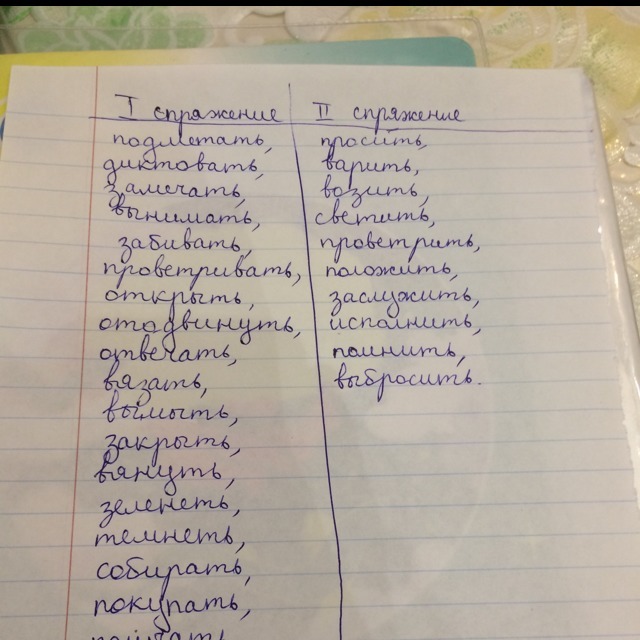 I спряжение II спряжение
подметать, просить,
диктовать, варить,
замечать, возить,
вынимать, светить,
забивать, проветрить,
проветривать, положить,
открыть, заслужить,
отодвинуть, исполнить,
отвечать, помнить,
вязать, выбросить.
вымыть,
закрыть,
вянуть,
зеленеть,
темнеть,
собирать,
покупать,